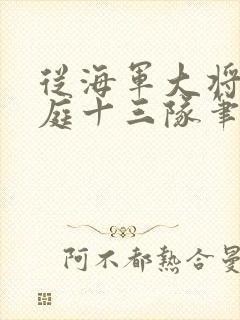 従海軍大将
庭十三隊筆
阿不都熱合曼